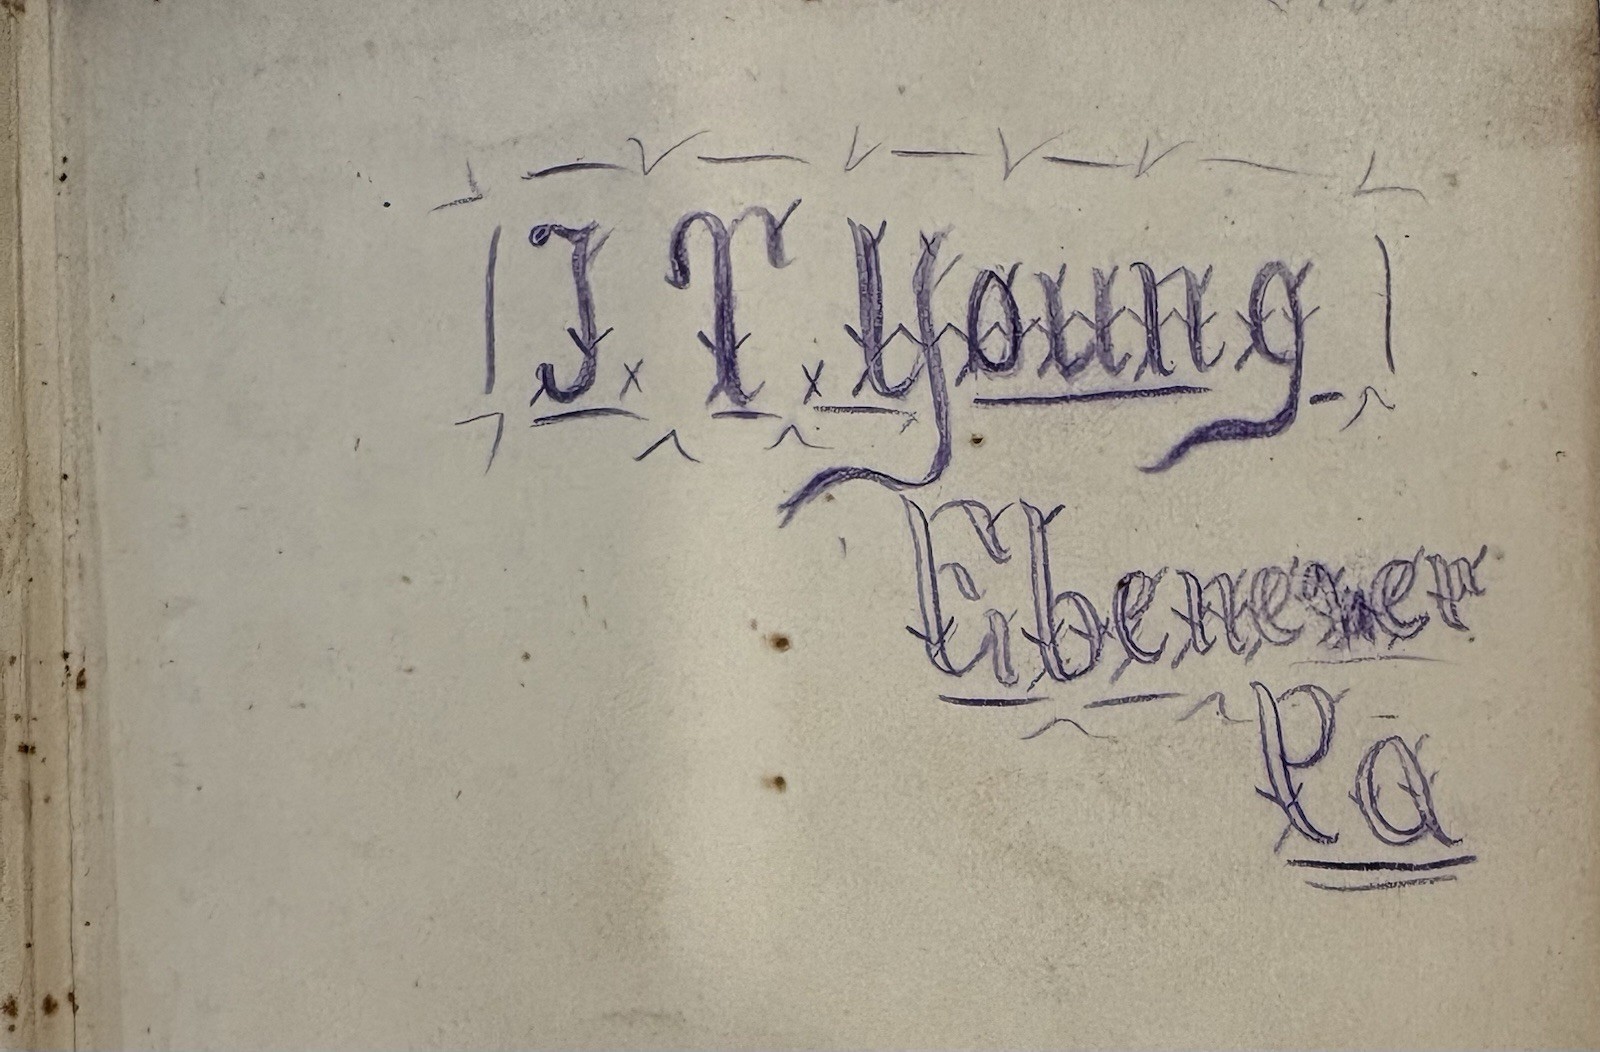 J. T. Young
Ebenezer
Pa